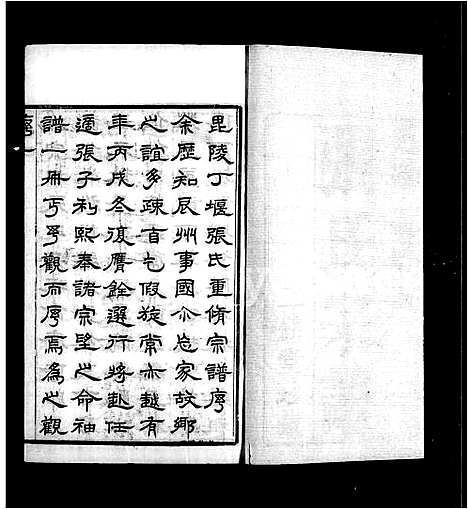 毘陵丁堰張氏重脩宗譜序
余歷知辰州事國尒忘家故鄉
之誼多疎自乞假旋常亦越有
年丙戌冬復膺銓選行將赴任
適張子利熙奉諸宗望之命袖
譜一冊丐予觀而序焉爲之觀
序一